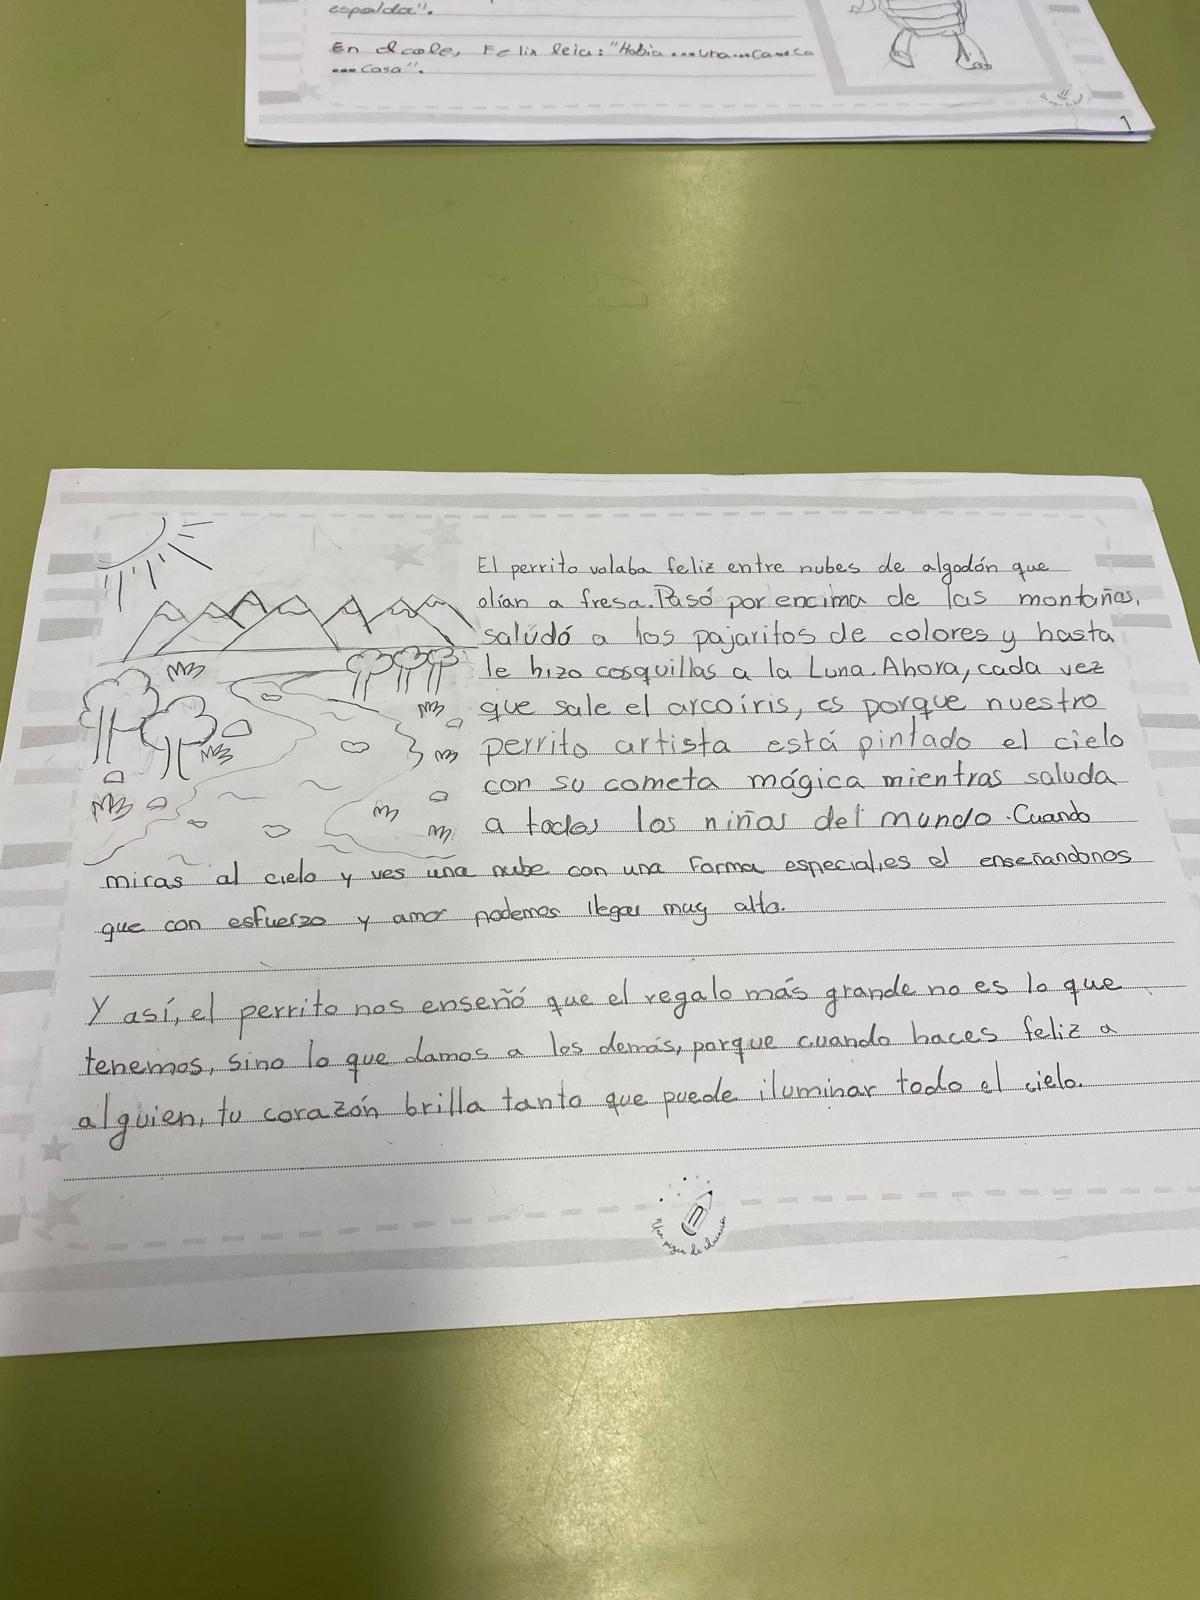 espalda".
En el cole, Felix leia: "Habia...una...ca...ca
...casa".
1
El perrito volaba feliz entre nubes de algodón que
olían a fresa. Pasó por encima de las montañas,
saludó a los pajaritos de colores y hasta
le hizo cosquillas a la Luna. Ahora, cada vez
que sale el arcoíris, es porque nuestro
perrito artista está pintado el cielo
con su cometa mágica mientras saluda
a todos los niños del mundo. Cuando
miras al cielo y ves una nube con una forma especial, es el enseñandonos
que con esfuerzo y amor podemos llegar muy alto.
Y así, el perrito nos enseñó que el regalo más grande no es lo que
tenemos, sino lo que damos a los demás, porque cuando haces feliz a
alguien, tu corazón brilla tanto que puede iluminar todo el cielo.